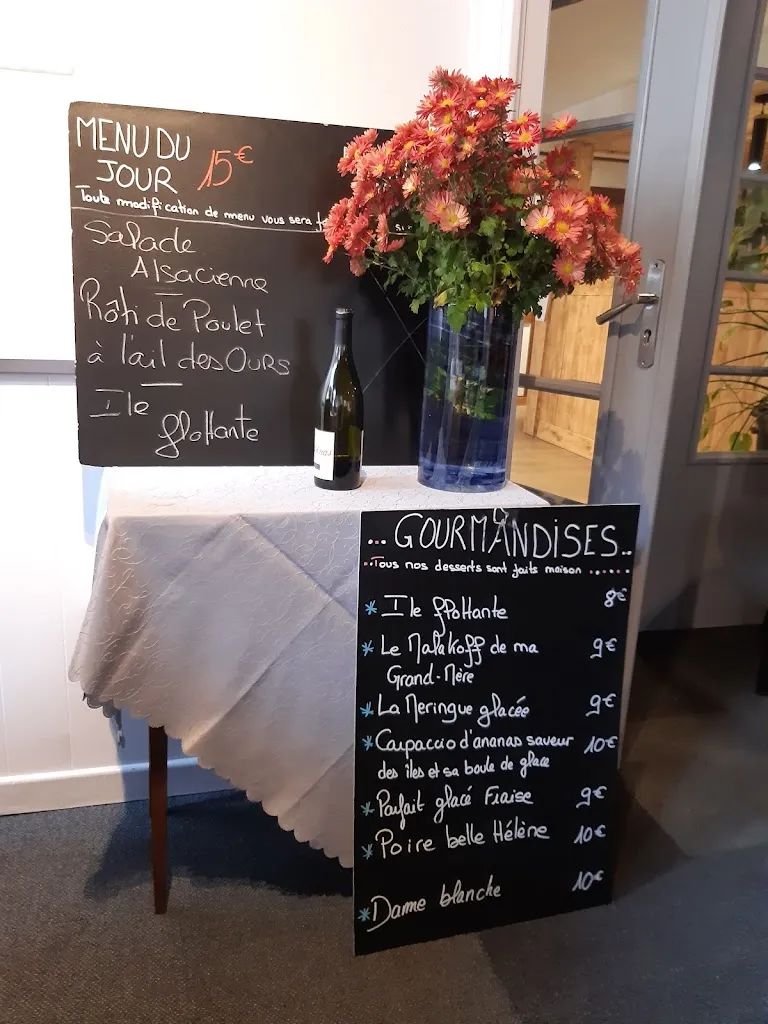 MENU DU
JOUR 15€
Toute modification de menu vous sera
Salade
Alsacienne
Rôti de Poulet
à l'ail des Ours
Ile
flottante
... GOURMANDISES..
Tous nos desserts sont faits maison ......
* Ile flottante 8€
* Le Malakoff de ma 9€
Grand-Mère
* La Meringue glacée 9€
* Carpaccio d'ananas saveur 10€
des îles et sa boule de glace
* Parfait glacé Fraise 9€
* Poire belle Hélène 10€
* Dame blanche 10€